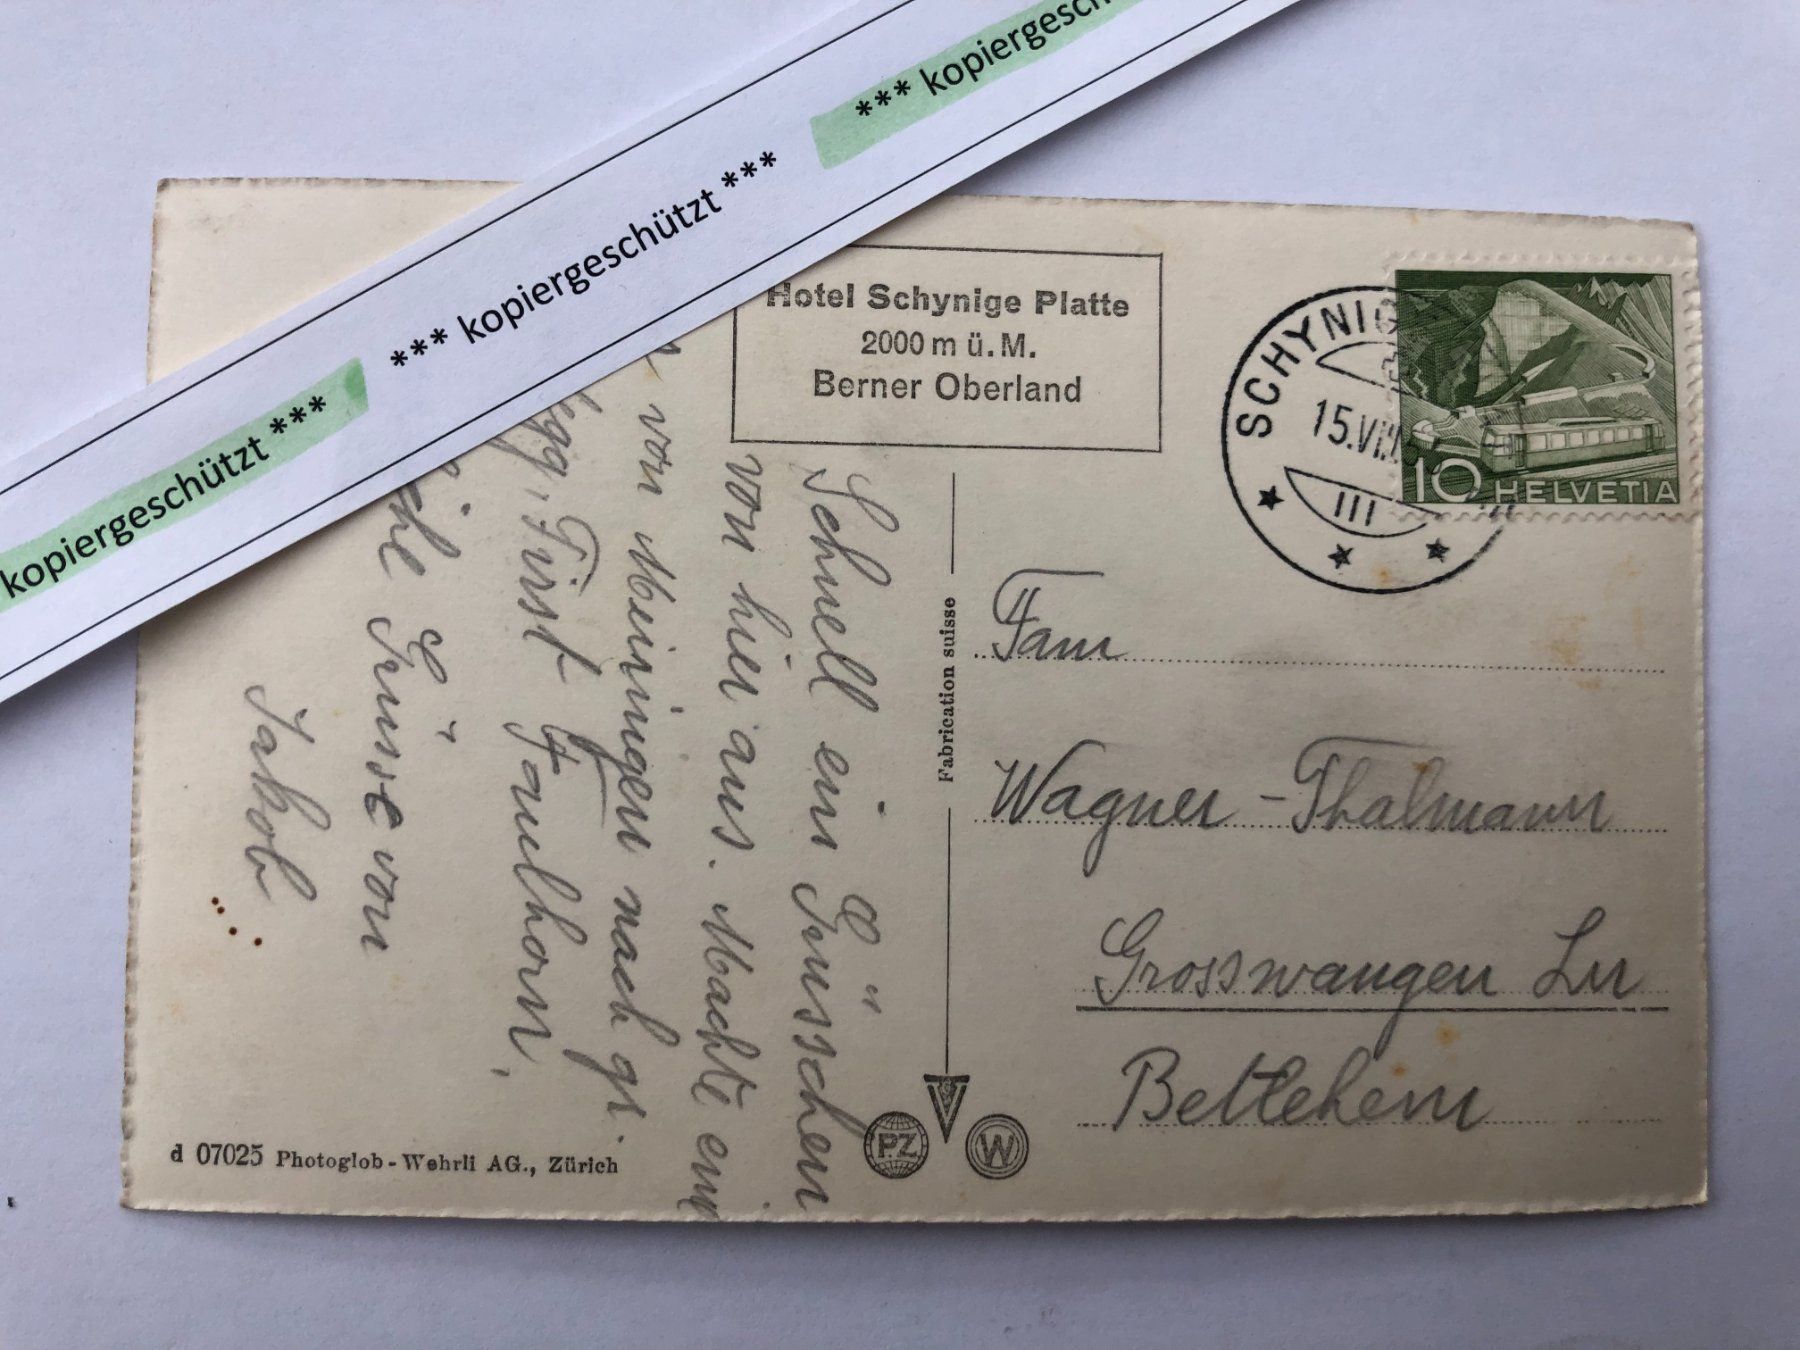 *** kopiergeschützt ***
*** kopiergeschützt ***
kopiergeschützt ***
Hotel Schynige Platte
2000 m ü. M.
Berner Oberland
SCHYNIG
15.VII.
III
10 HELVETIA
Schnell ein Grüsschen
von hier aus. Machte ein
von Meiringen nach gr.
egg, First Faulhorn,
che Grüsse von
Jakob
Fabrication suisse
Fam
Wagner-Thalmann
Grosswangen Lu
Betlehem
d 07025 Photoglob-Wehrli AG., Zürich
PZ
W